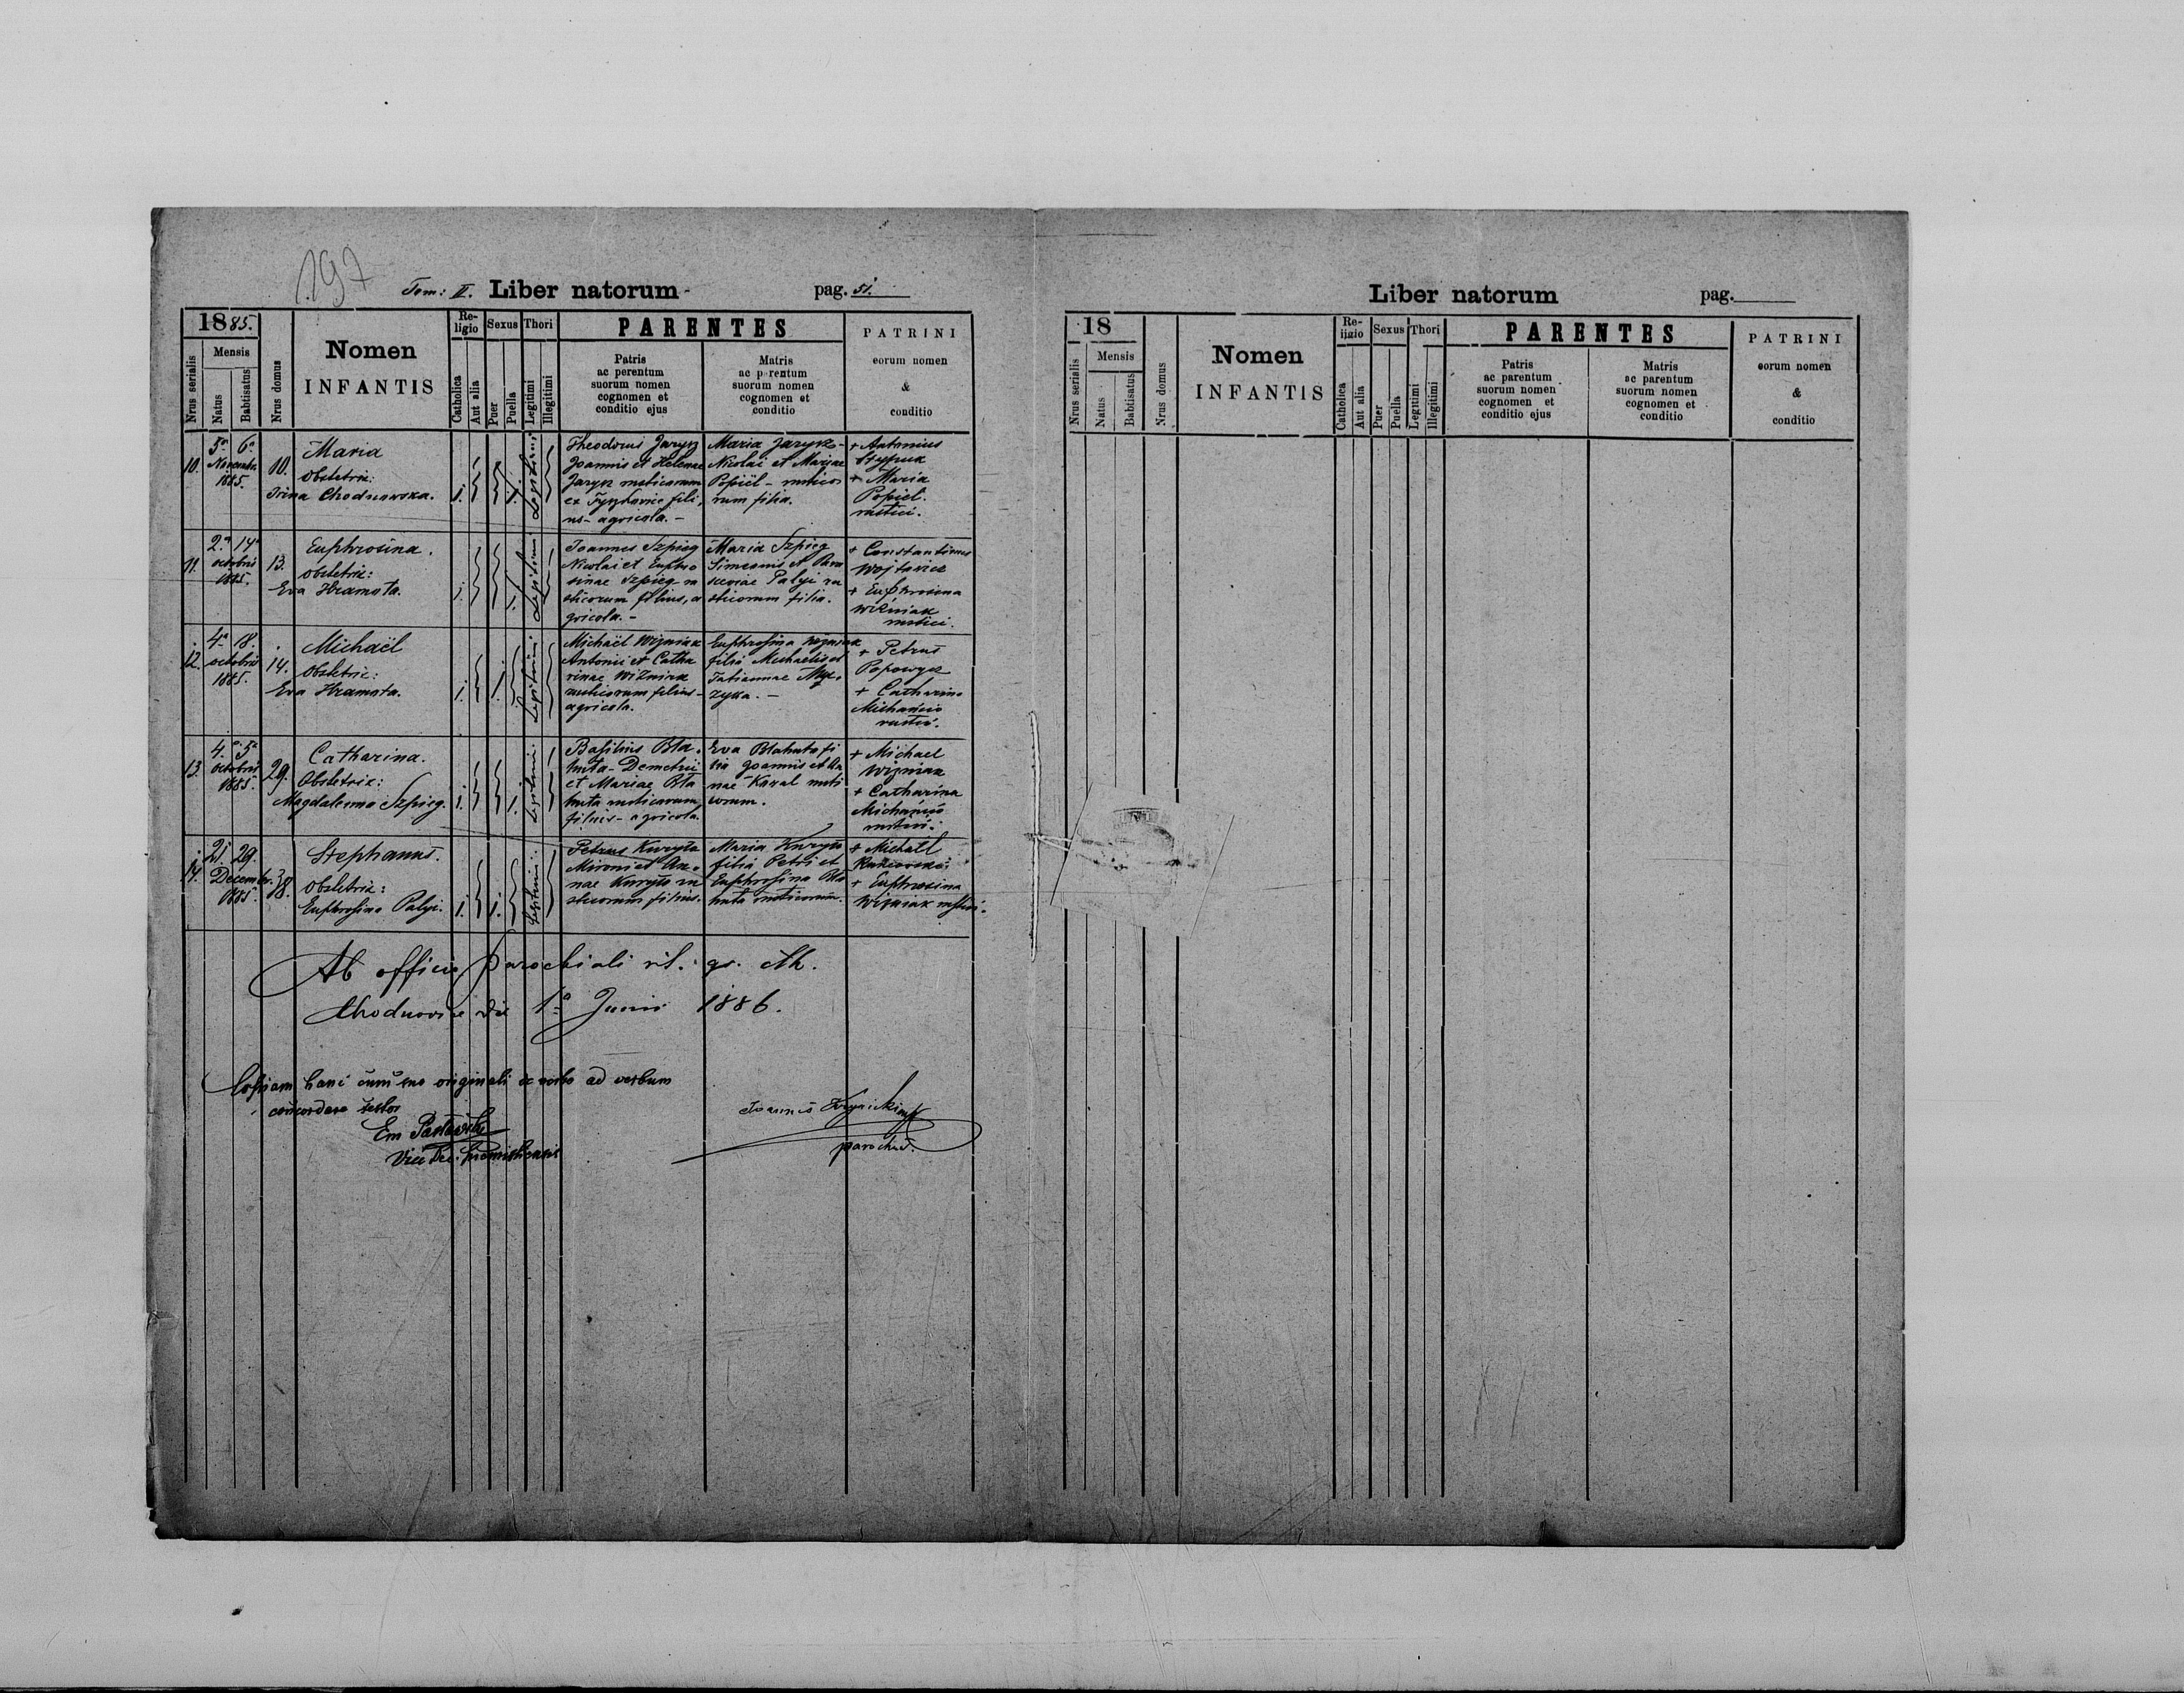 197
Tom: II. Liber natorum pag. 51.
1885.
Nrus serialis
Mensis
Natus
Babtisatus
Nrus domus
Nomen
INFANTIS
Religio
Catholica
Aut alia
Sexus
Puer
Puella
Thori
Legitimi
Illegitimi
PARENTES
Patris
ac perentum
suorum nomen
cognomen et
conditio ejus
Matris
ac parentum
suorum nomen
cognomen et
conditio
PATRINI
eorum nomen
&
conditio
10.
5a 6a
Novembris
1885.
10.
Maria
Obstetrix:
Irina Chodnowska.
1.
1.
Legitimi
Theodorus Jaryk
Joannis et Helenae
Jaryk rusticorum
ex fili
us - agricola. -
Maria Jaryk -
Nicolai et Mariae
Popiël - rustico
rum filia.
+ Antonius
+ Maria
Popiel.
rustici.
11.
2a 14a
octobris
1885.
13.
Euphrosina.
Obstetrix:
Eva Hramota.
1.
1.
Legitimi
Joannes Szpieg
Nicolai et Euphro
sinae Szpieg ru
sticorum filius, a
gricola. -
Maria Szpieg
Simeonis et Para
scevae Palyi ru
sticorum filia.
+ Constantinus
Wojtowicz
+ Euphrosina
Wiżniak
rustici.
12.
4a 18.
octobris
1885.
14.
Michaël
Obstetrix:
Eva Hramota.
1.
1.
Legitimi
Michaël Wiżniak
Antonii et Catha
rinae Wiżniak
rusticorum filius -
agricola.
Euphrosina Wiżniak
filia Michaelis et
Tatiannae
+ Petrus
Popowycz
+ Catharina
rustici.
13.
4. 5a
octobris
1885.
29.
Catharina.
Obstetrix:
Magdalenna Szpieg.
1.
1.
Legitimi
Basilius Bla
huta - Demetrii
et Mariae Bla
huta rusticorum
filius - agricola.
Eva Blahuta fi
lia Joannis et An
nae Kaval rusti
corum.
+ Michael
Wiżniak
+ Catharina
rustici.
14.
21. 29.
Decembr.
1885.
38.
Stephanus.
Obstetrix:
Euphrosina Palyi.
1.
1.
Legitimi
Petrus Kuryło
Mironi et An
nae Kuryło ru
sticorum filius.
Maria Kuryło
filia Petri et
Euphrosina Bla
huta rusticorum.
+ Michaël
+ Euphrosina
Wiżniak rustici.
Ab officio parochiali rit. gr. cth.
Chodnovice die 1a Junii 1886.
Copiam hanc cum suo originali de verbo ad verbum
concordare testor
Em
Vice Dec. premisliensis
Joannes
parochus.
Liber natorum pag.
18
Nrus serialis
Mensis
Natus
Babtisatus
Nrus domus
Nomen
INFANTIS
Religio
Catholica
Aut alia
Sexus
Puer
Puella
Thori
Legitimi
Illegitimi
PARENTES
Patris
ac parentum
suorum nomen
cognomen et
conditio ejus
Matris
ac parentum
suorum nomen
cognomen et
conditio
PATRINI
eorum nomen
&
conditio